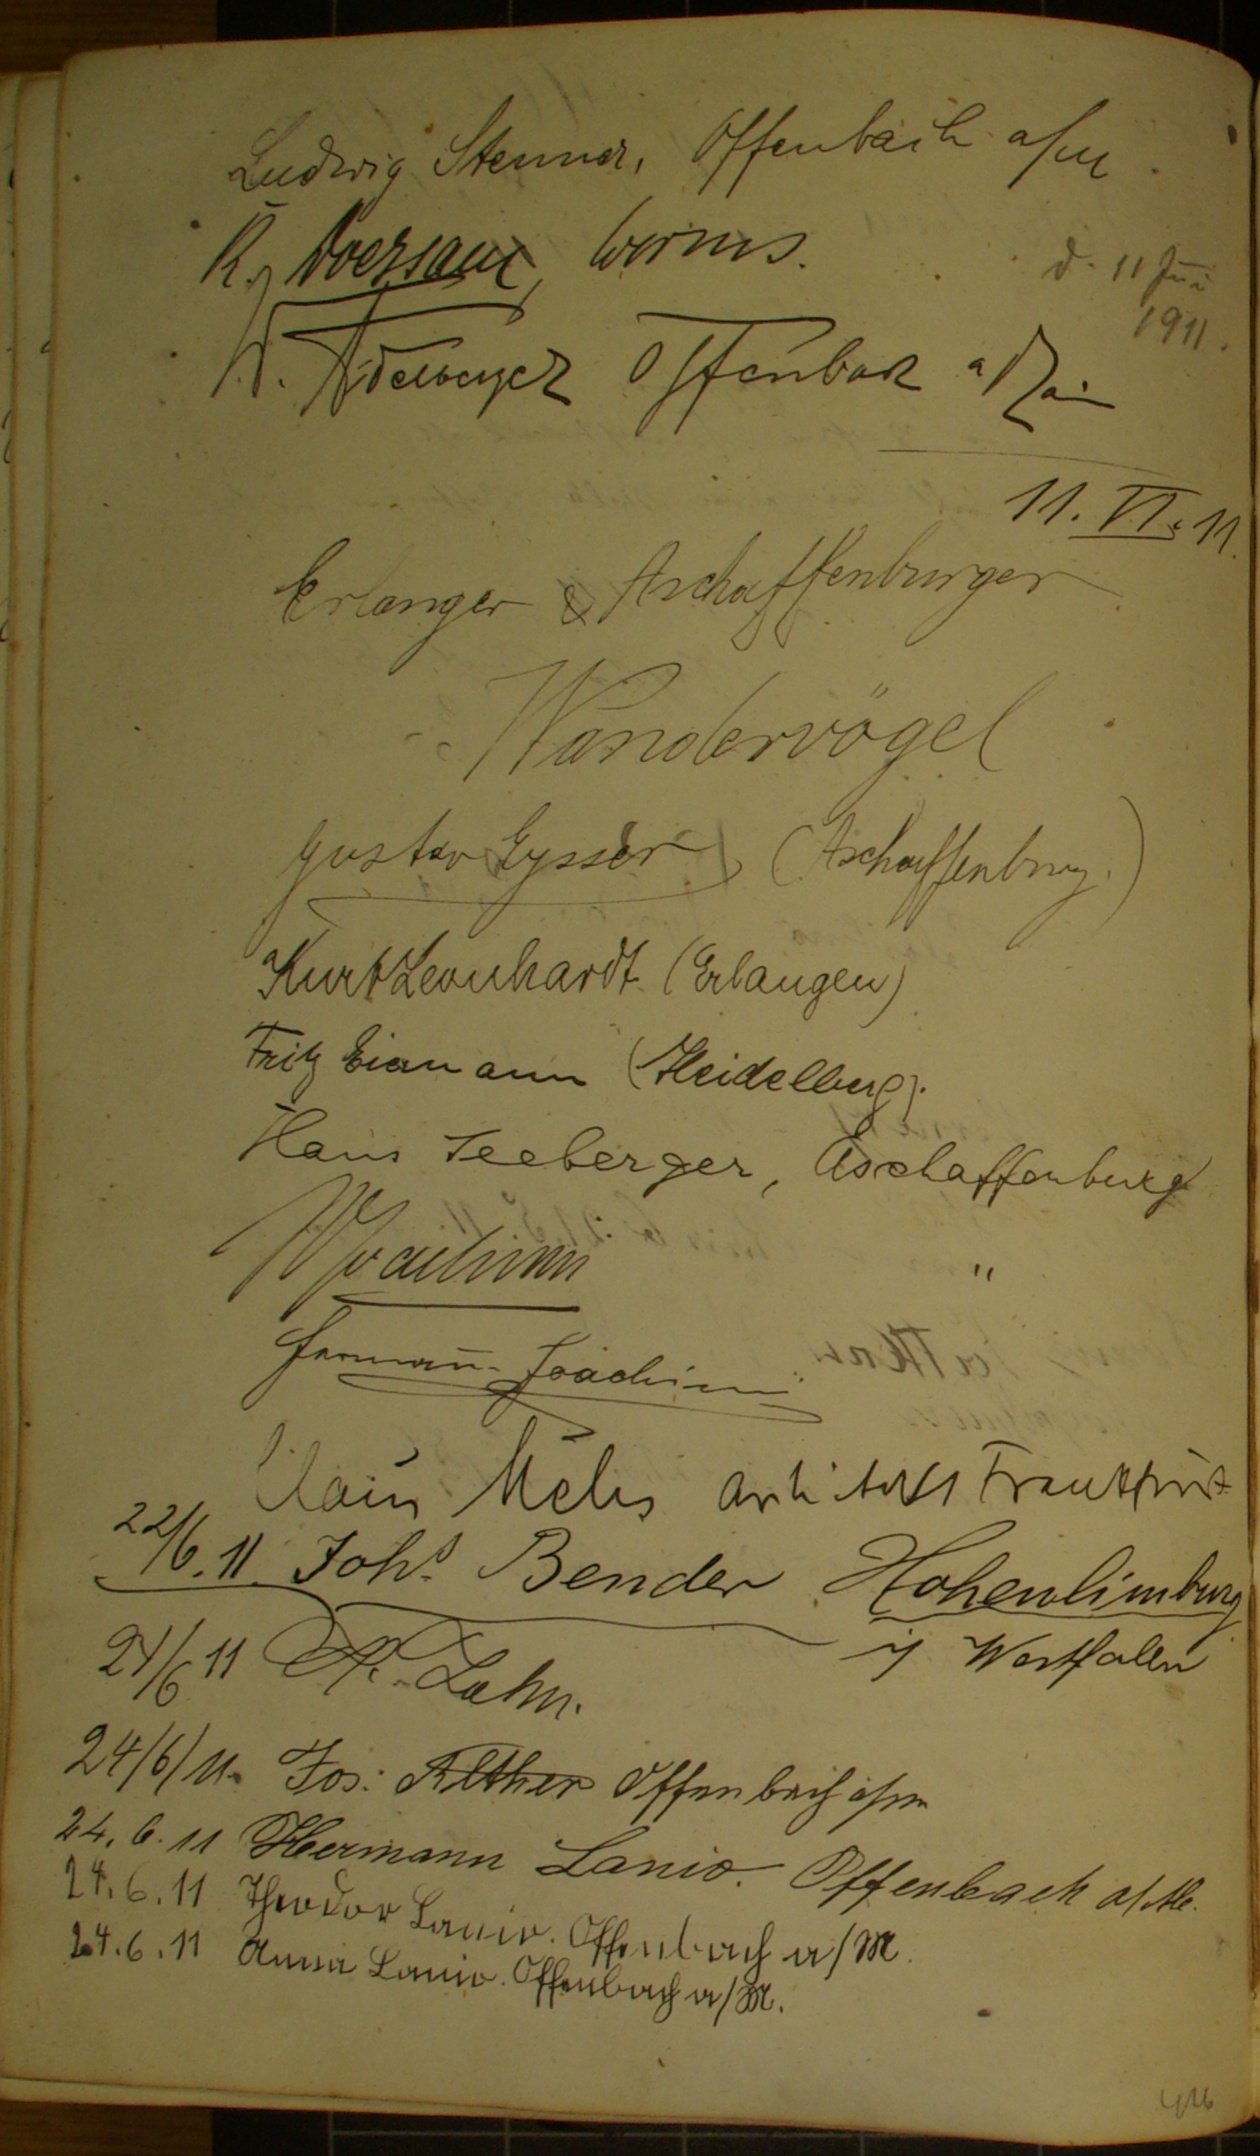 Ludwig Stenner, Offenbach a/M
K. Worms.
d. 11 Juni
1911.
Offenbach a Main
11. VI. 11.
Erlanger & Aschaffenburger
Wandervögel
Gustav Eysser, (Aschaffenburg.)
Kurt Leonhardt (Erlangen)
Fritz Eiermann (Heidelberg).
Hans Seeberger, Aschaffenburg
Joachimi "
Hermann Joachimi
Melis Architekt Frankfurt
22/6.11. Johs. Bender Hohenlimburg
i/ Westfalen
24/6 11 Lahn.
24/6/11. Jos. Alther Offenbach a/M
24.6.11 Hermann Lanio. Offenbach a/M.
24.6.11 Theodor Lanio. Offenbach a/M.
24.6.11 Anna Lanio. Offenbach a/M.